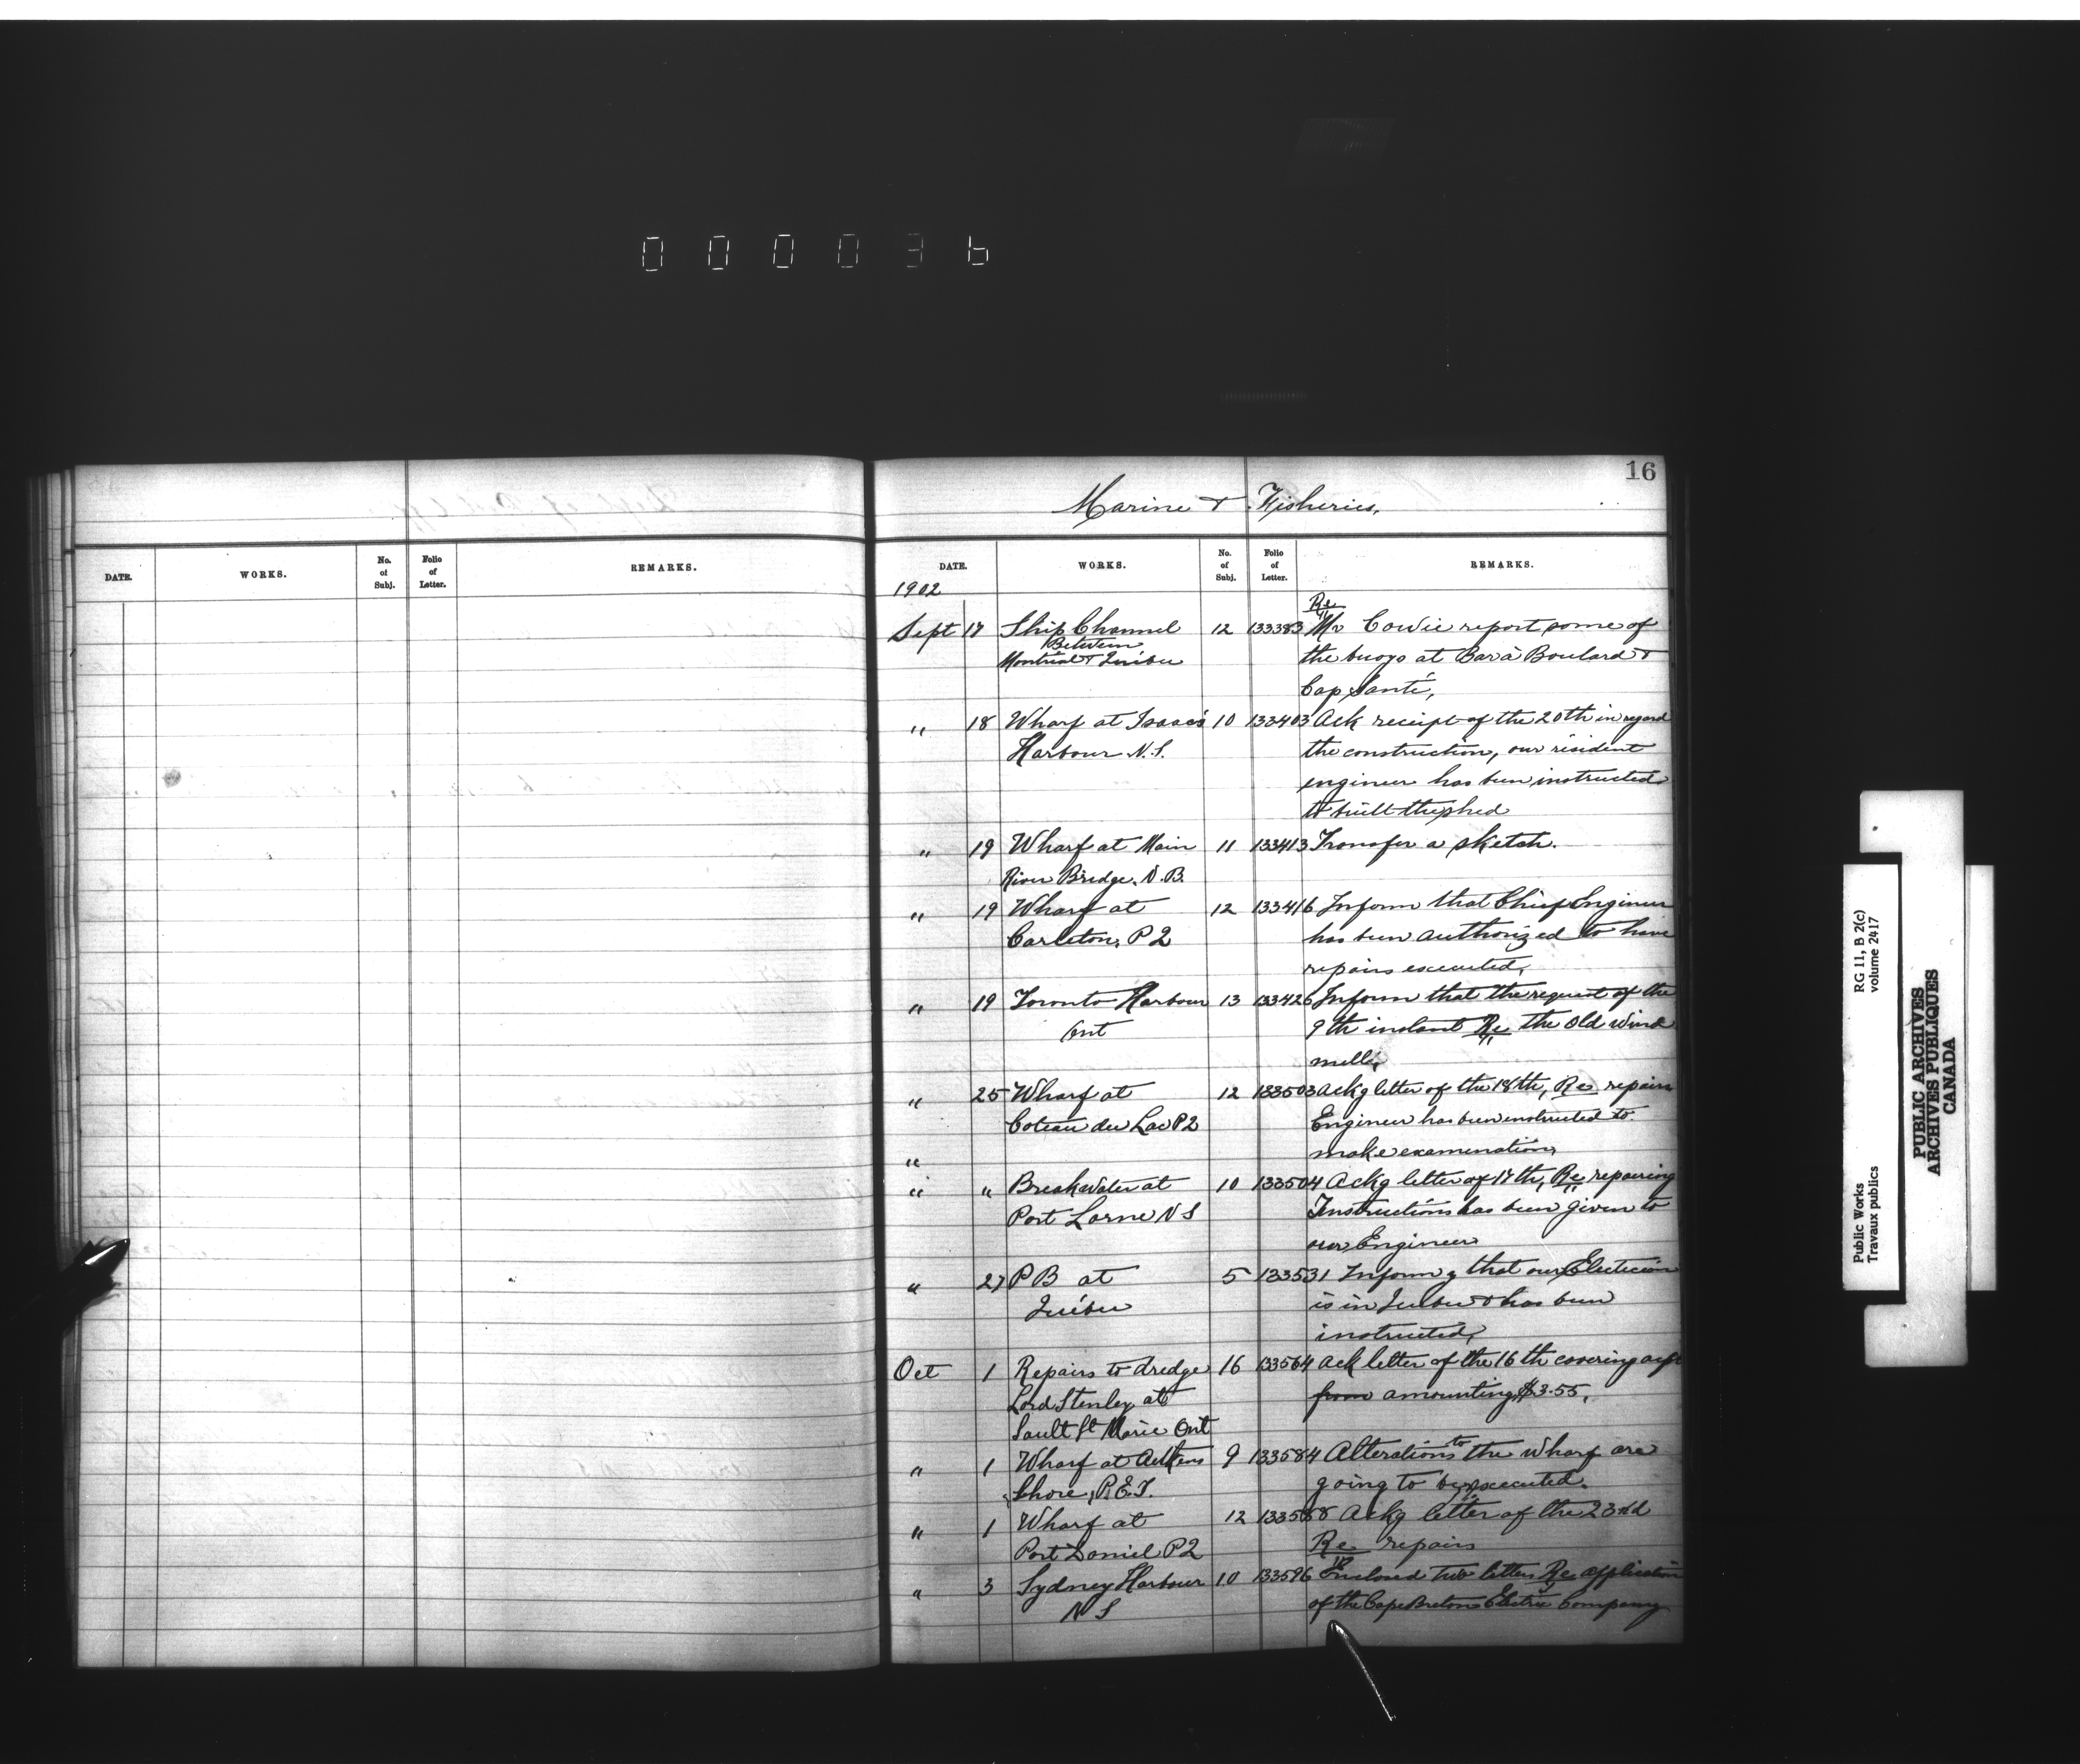 000036
16
Marine & Fisheries,
DATE. WORKS. No. of Subj. Folio of Letter. REMARKS.
DATE. WORKS. No. of Subj. Folio of Letter. REMARKS.
1902
Sept 17 Ship Channel 12 133383 Re Mr Cowie report some of
Between
Montreal & Québec the buoys at Bar à Boulard &
Cap Santé,
" 18 Wharf at Isaac's 10 133403 Ack receipt of the 20th in regard
Harbour N.S. the construction, our resident
engineer has been instructed
to built the shed
" 19 Wharf at Main 11 133413 Transfer a sketch.
River Bridge, N.B.
" 19 Wharf at 12 133416 Inform that Chief Engineer
Carleton, P2 has been authorized to have
repairs executed,
" 19 Toronto Harbour 13 133426 Inform that the request of the
Ont 9th instant Re the old wind
mill,
" 25 Wharf at 12 133503 Ackg letter of the 18th, Re repairs
Coteau du Lac P2 Engineer has been instructed to
" make examination,
" " Breakwater at 10 133504 Ackg letter of 17th, Re repairing
Port Lorne N S Instructions has been given to
our Engineer
" 27 P B at 5 133531 Informg that our Electician
Québec is in Quebec & has been
instructed,
Oct 1 Repairs to dredge 16 133564 Ack letter of the 16th covering
Lord Stenley at from amounting $3.55,
Sault St Marie Ont
" 1 Wharf at 9 133584 Alterations to the wharf are
Shore, P.E.I. going to be executed.
" 1 Wharf at 12 133588 Ackg letter of the 23rd
Port Daniel P2 Re repairs
" 3 Sydney Harbour 10 133596 Enclosed two letters Re application
N S of the Cape Breton Electric Company
RG 11, B 2(c)
volume 2417
Public Works
Travaux publics
PUBLIC ARCHIVES
ARCHIVES PUBLIQUES
CANADA